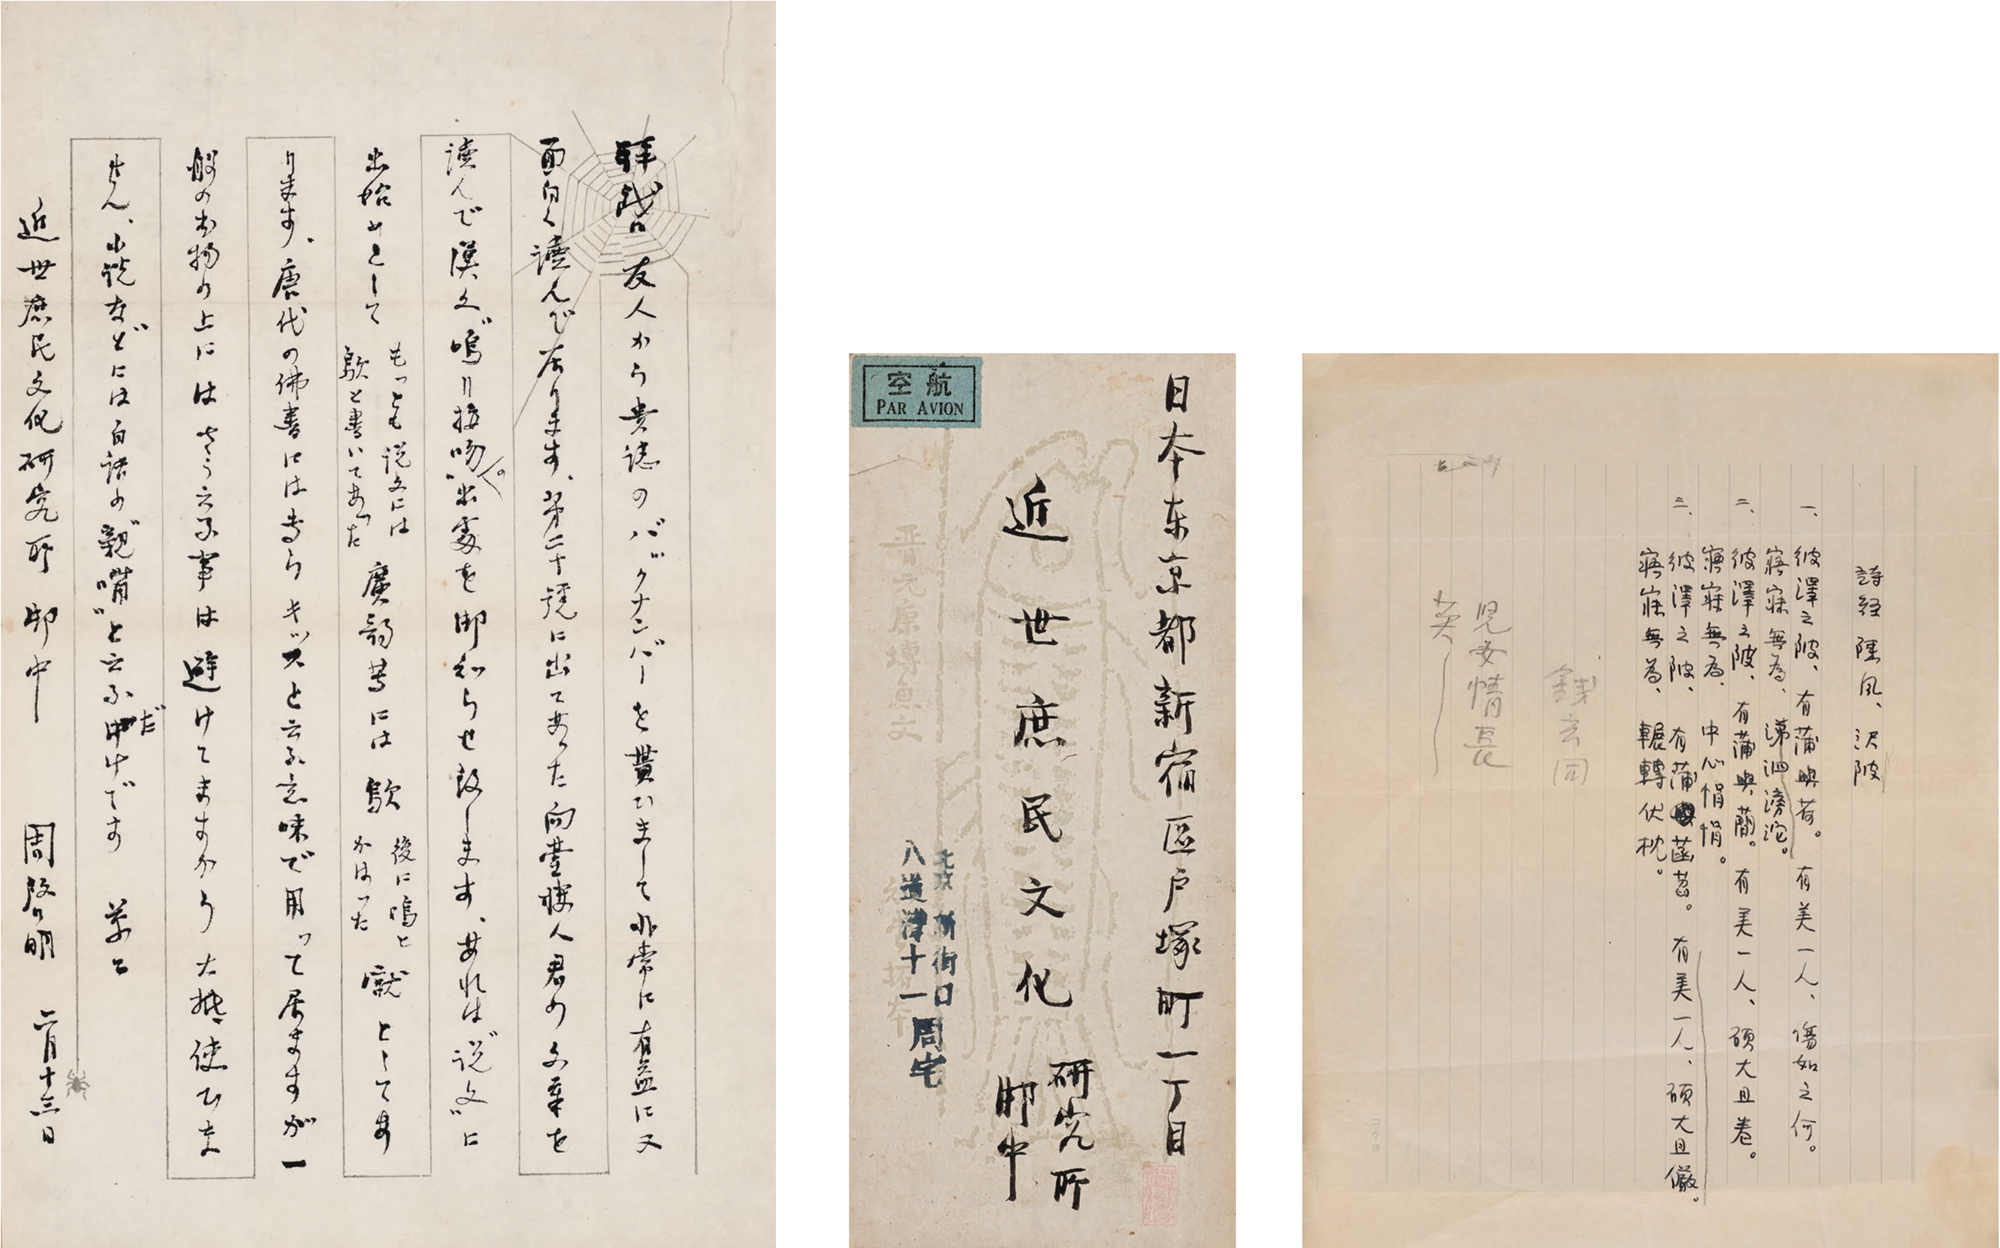 拝啓 友人から貴誌のバックナンバーを貰ひまして非常に有益に又
面白く読んで居ります、第二十號に出てあった向臺棲人君の文章を
読んで漢文“嗚”リ接吻“出處を御知らせ致します、あれは“説文”に
出始めとして もっとも説文には
歍と書いてあった 廣韵等には歍 後に嗚と
かはった 𪙊としてあ
ります、唐代の佛書には専らキッスと云ふ意味で用って居ますが一
般の書物の上にはさう云ふ事は避けてますから大抵使ひま
せん、小説などには白話の“親嘴”と云ふだ申けです 草々
近世庶民文化研究所 御中 周啓明 二月十三日
空航
PAR AVION
日本东京都新宿區戸塚町一丁目
近世庶民文化研究所 御中
北京 新街口
八道灣十一周宅
晋元康塼惠文
詩经 陳风、泽陂
一、彼澤之陂、有蒲與荷。有美一人、傷如之何。
寤寐無為、涕泗滂沱。
二、彼澤之陂、有蒲與蕳。有美一人、碩大且卷。
寤寐無為、中心悁悁。
三、彼澤之陂、有蒲菡萏。有美一人、碩大且儼。
寤寐無為、輾轉伏枕。
錢玄同
児女情長
英